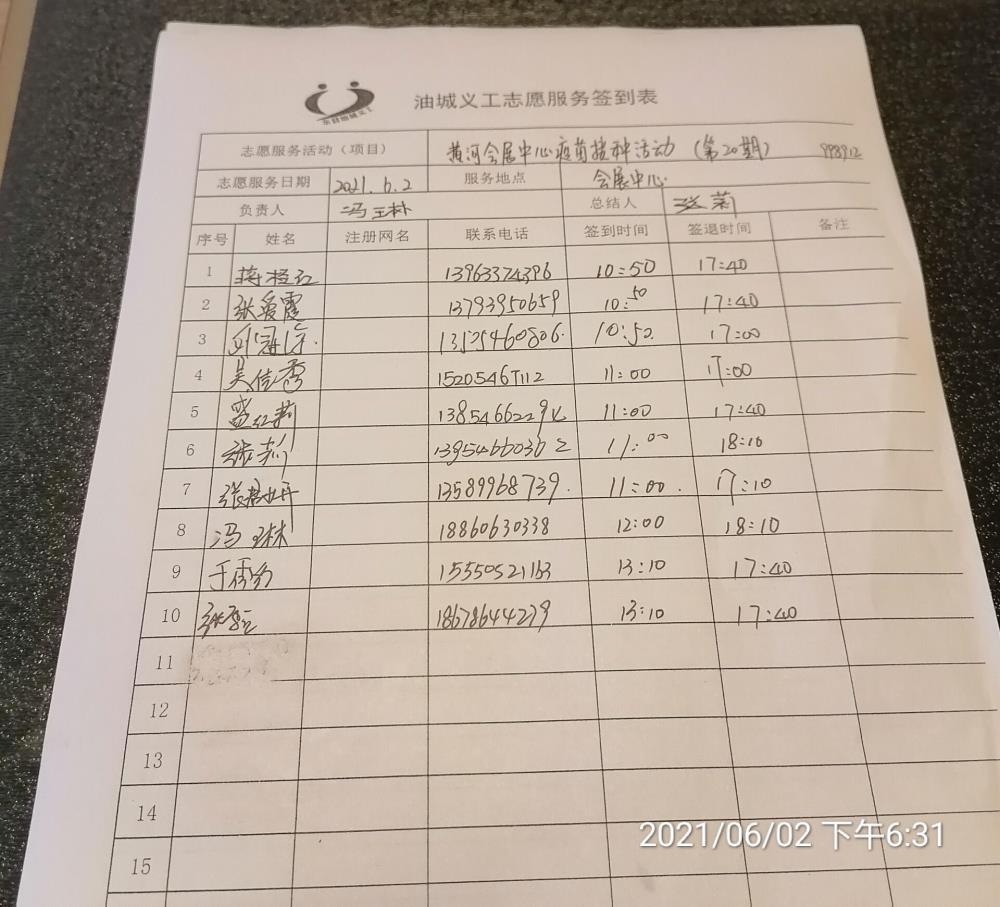 油城义工志愿服务签到表
东营油城义工
志愿服务活动（项目） 黄河会展中心疫苗接种活动（第20期） 998912
志愿服务日期 2021.6.2 服务地点 会展中心
负责人 冯玉林 总结人 张莉
序号 姓名 注册网名 联系电话 签到时间 签退时间 备注
1 13963374396 10:50 17:40
2 张爱霞 13793950659 10:50 17:40
3 13525460806 10:50 17:00
4 吴佳香 15205467112 11:00 17:00
5 盛红莉 11:00 17:40
6 张莉 13954660362 11:00 18:10
7 13589968739 11:00 17:10
8 冯玉林 18860630338 12:00 18:10
9 15550521163 13:10 17:40
10 18678644279 13:10 17:40
11
12
13
14
15
2021/06/02 下午6:31